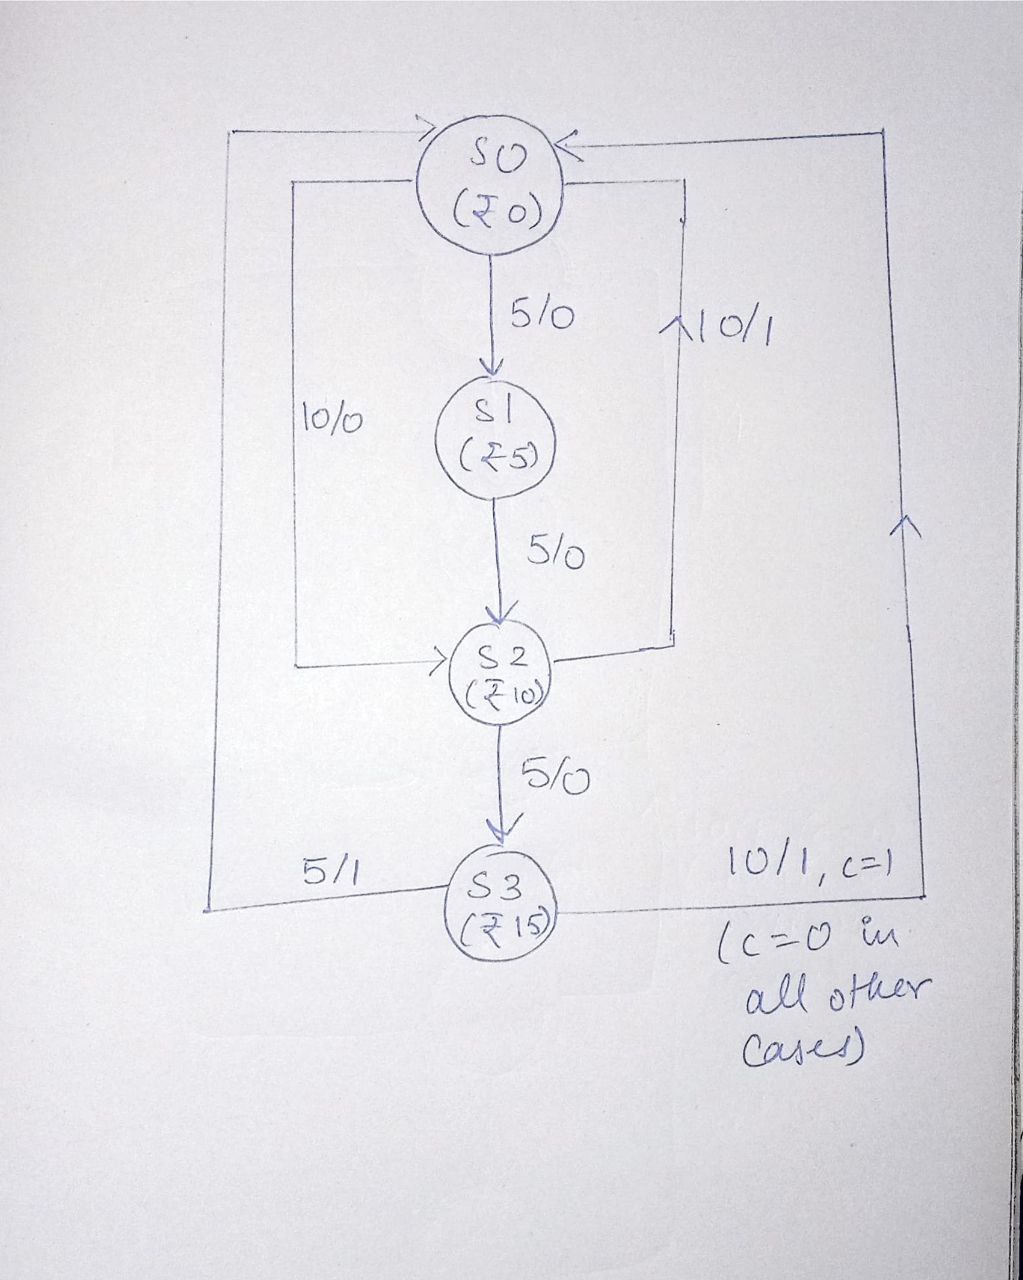 S0
(₹0)
5/0
10/1
S1
(₹5)
10/0
5/0
S2
(₹10)
5/0
5/1
S3
(₹15)
10/1, c=1
(c=0 in
all other
cases)